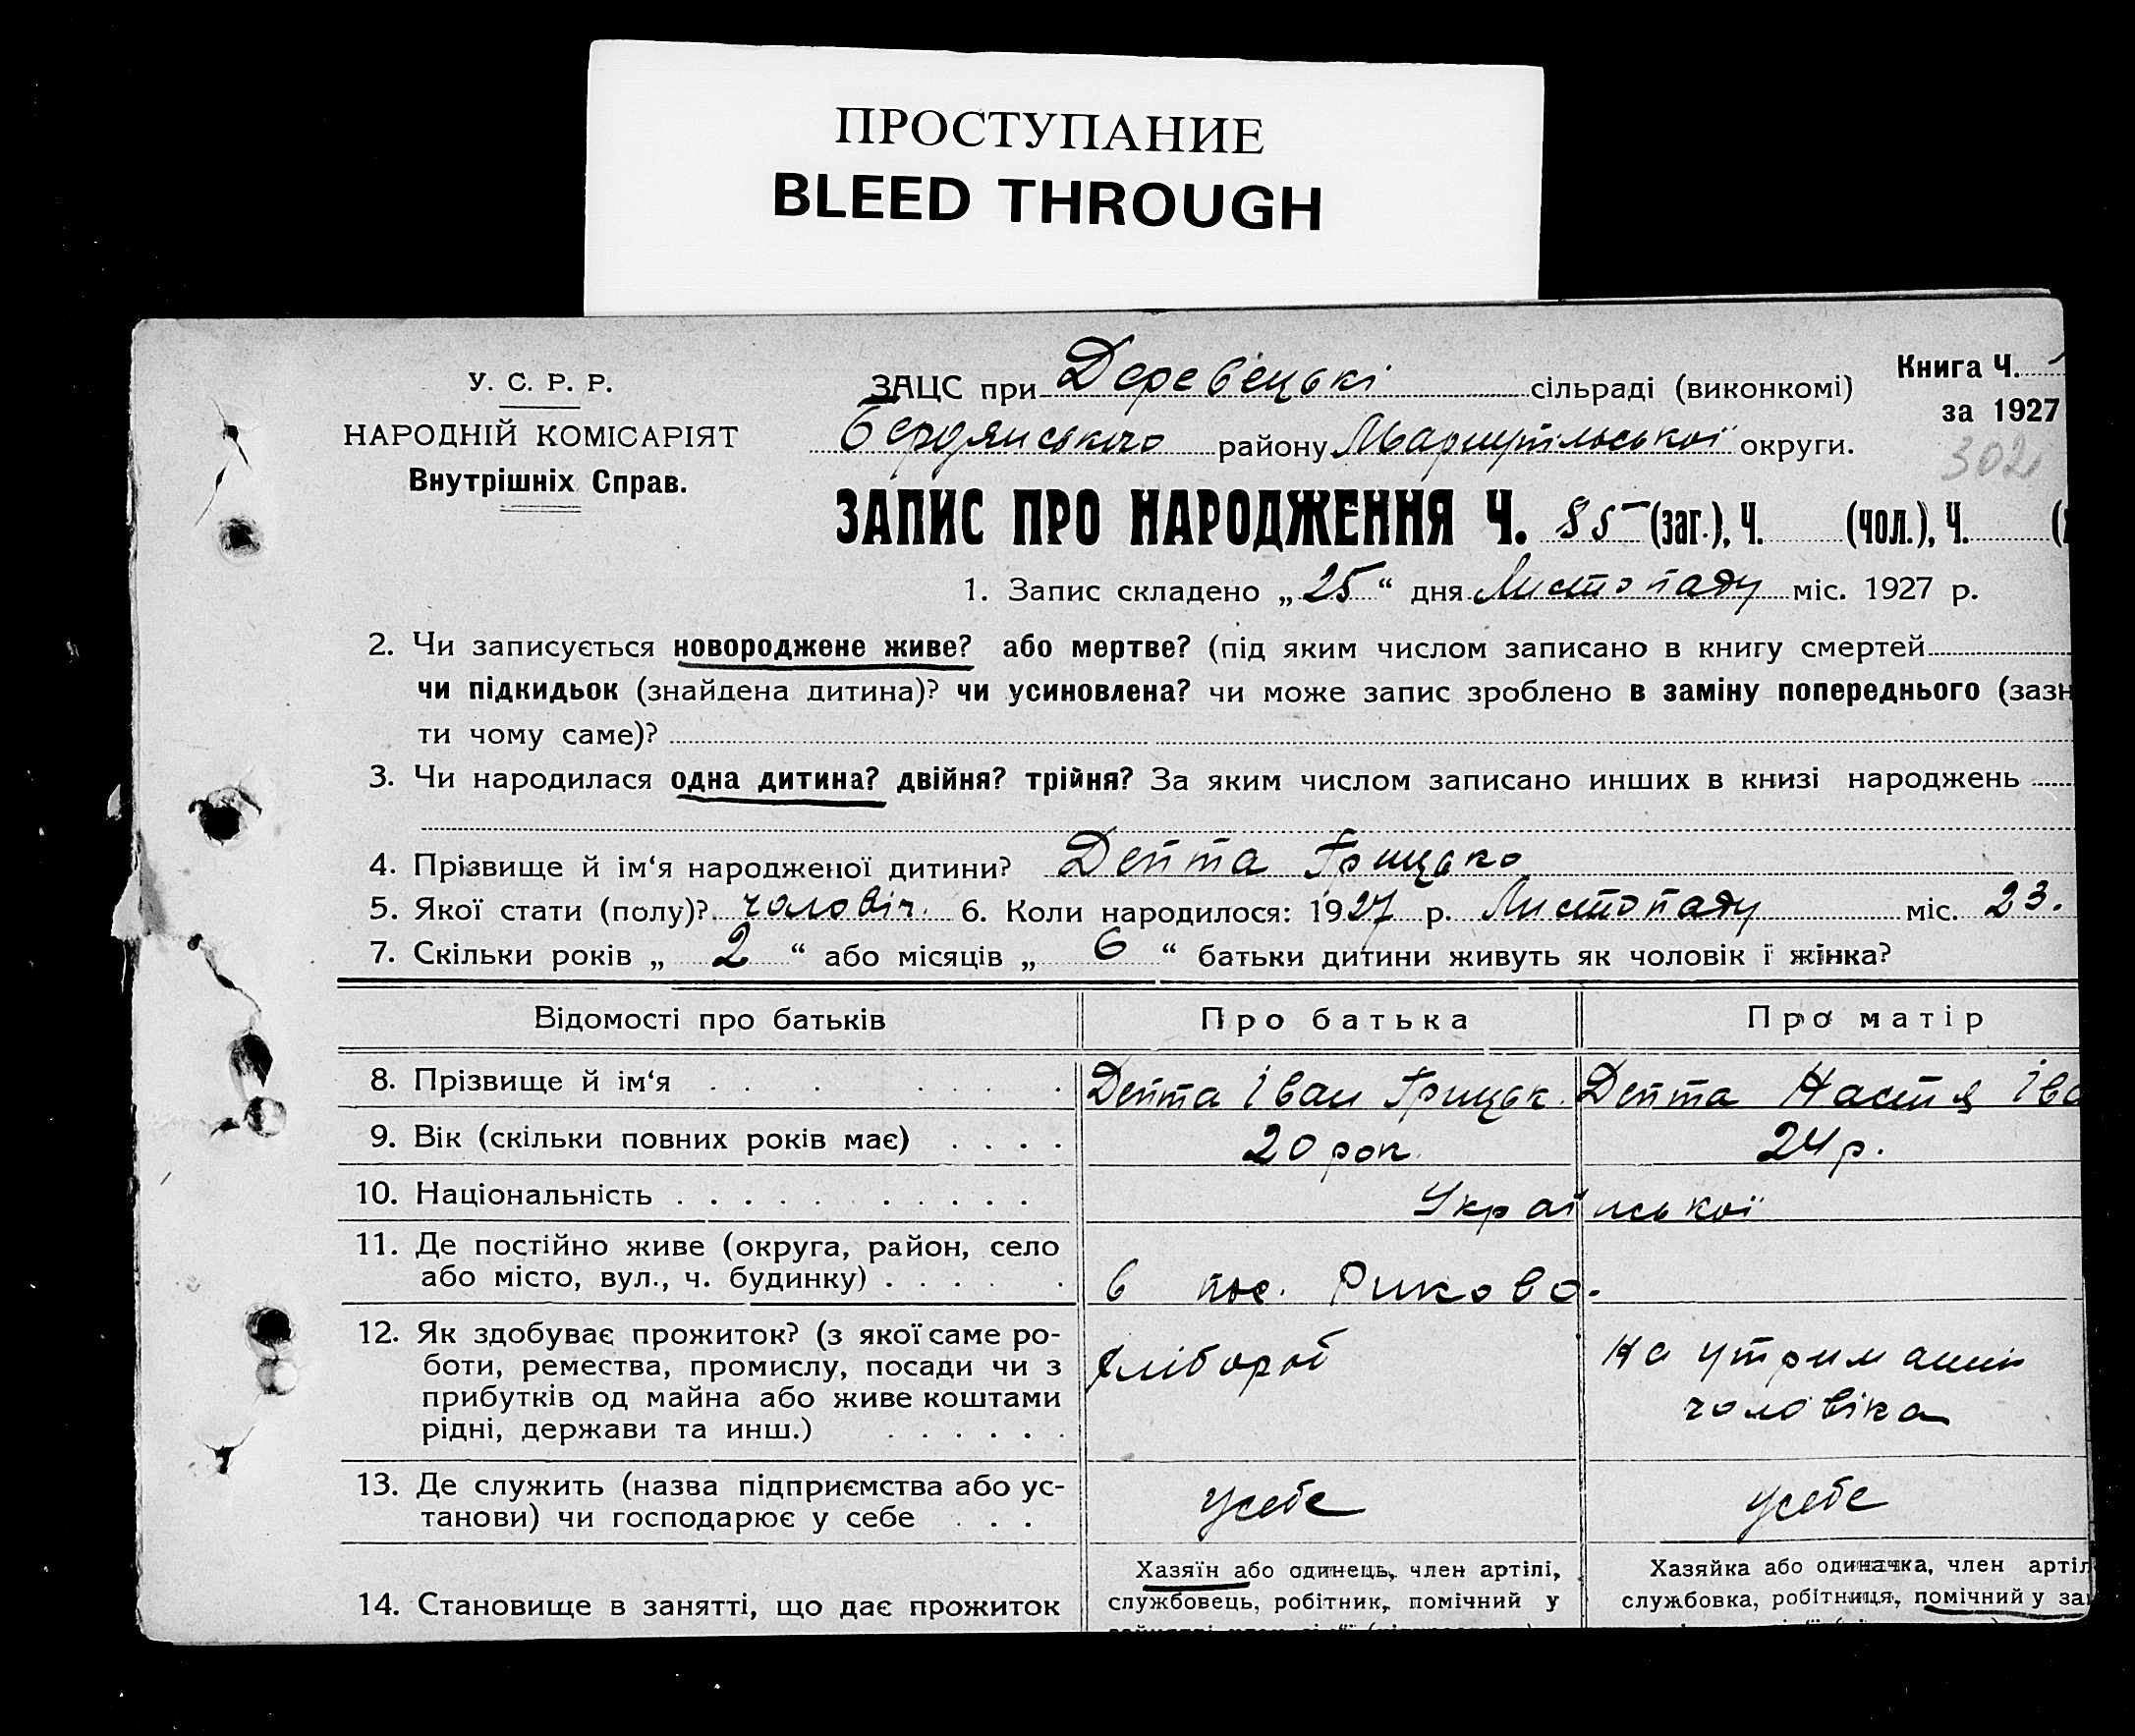 ПРОСТУПАНИЕ
BLEED THROUGH
У. С. Р. Р.
НАРОДНІЙ КОМІСАРІЯТ
Внутрішніх Справ.
ЗАЦС при Деревецькі сільраді (виконкомі)
Бердянського району Маріупільської округи.
Книга Ч.
за 1927
302
ЗАПИС ПРО НАРОДЖЕННЯ Ч. 85 (заг.), Ч. (чол.), Ч. (
1. Запис складено „ 25 “ дня Листопаду міс. 1927 р.
2. Чи записується новороджене живе? або мертве? (під яким числом записано в книгу смертей
чи підкидьок (знайдена дитина)? чи усиновлена? чи може запис зроблено в заміну попереднього (зазн
ти чому саме)?
3. Чи народилася одна дитина? двійня? трійня? За яким числом записано инших в книзі народжень
4. Прізвище й ім‘я народженої дитини? Депта Грицько
5. Якої стати (полу)? чоловіч. 6. Коли народилося: 1927 р. Листопаду міс. 23.
7. Скільки років „ 2 “ або місяців „ 6 “ батьки дитини живуть як чоловік і жінка?
Відомості про батьків Про батька Про матір
8. Прізвище й ім‘я . . . . . . . Депта Іван Грицьк. Депта Настя Іва
9. Вік (скільки повних років має) . . . . 20 рок. 24 р.
10. Національність . . . . . . . . . . Української
11. Де постійно живе (округа, район, село
або місто, вул., ч. будинку) . . . . . в пос. Риково.
12. Як здобуває прожиток? (з якої саме ро-
боти, ремества, промислу, посади чи з
прибутків од майна або живе коштами
рідні, держави та инш.) . . . . . .
хлібороб
на утриманні
чоловіка
13. Де служить (назва підприємства або ус-
танови) чи господарює у себе . . .
усебе
усебе
14. Становище в занятті, що дає прожиток
Хазяїн або одинець, член артілі,
службовець, робітник, помічний у
Хазяйка або одиначка, член артіл
службовка, робітниця, помічний у за